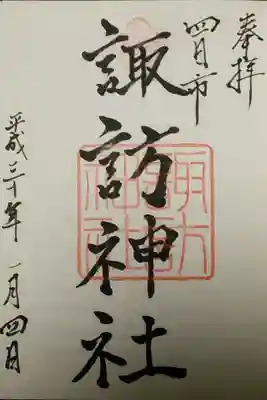 奉拝
四日市
諏訪神社
平成三十年一月四日